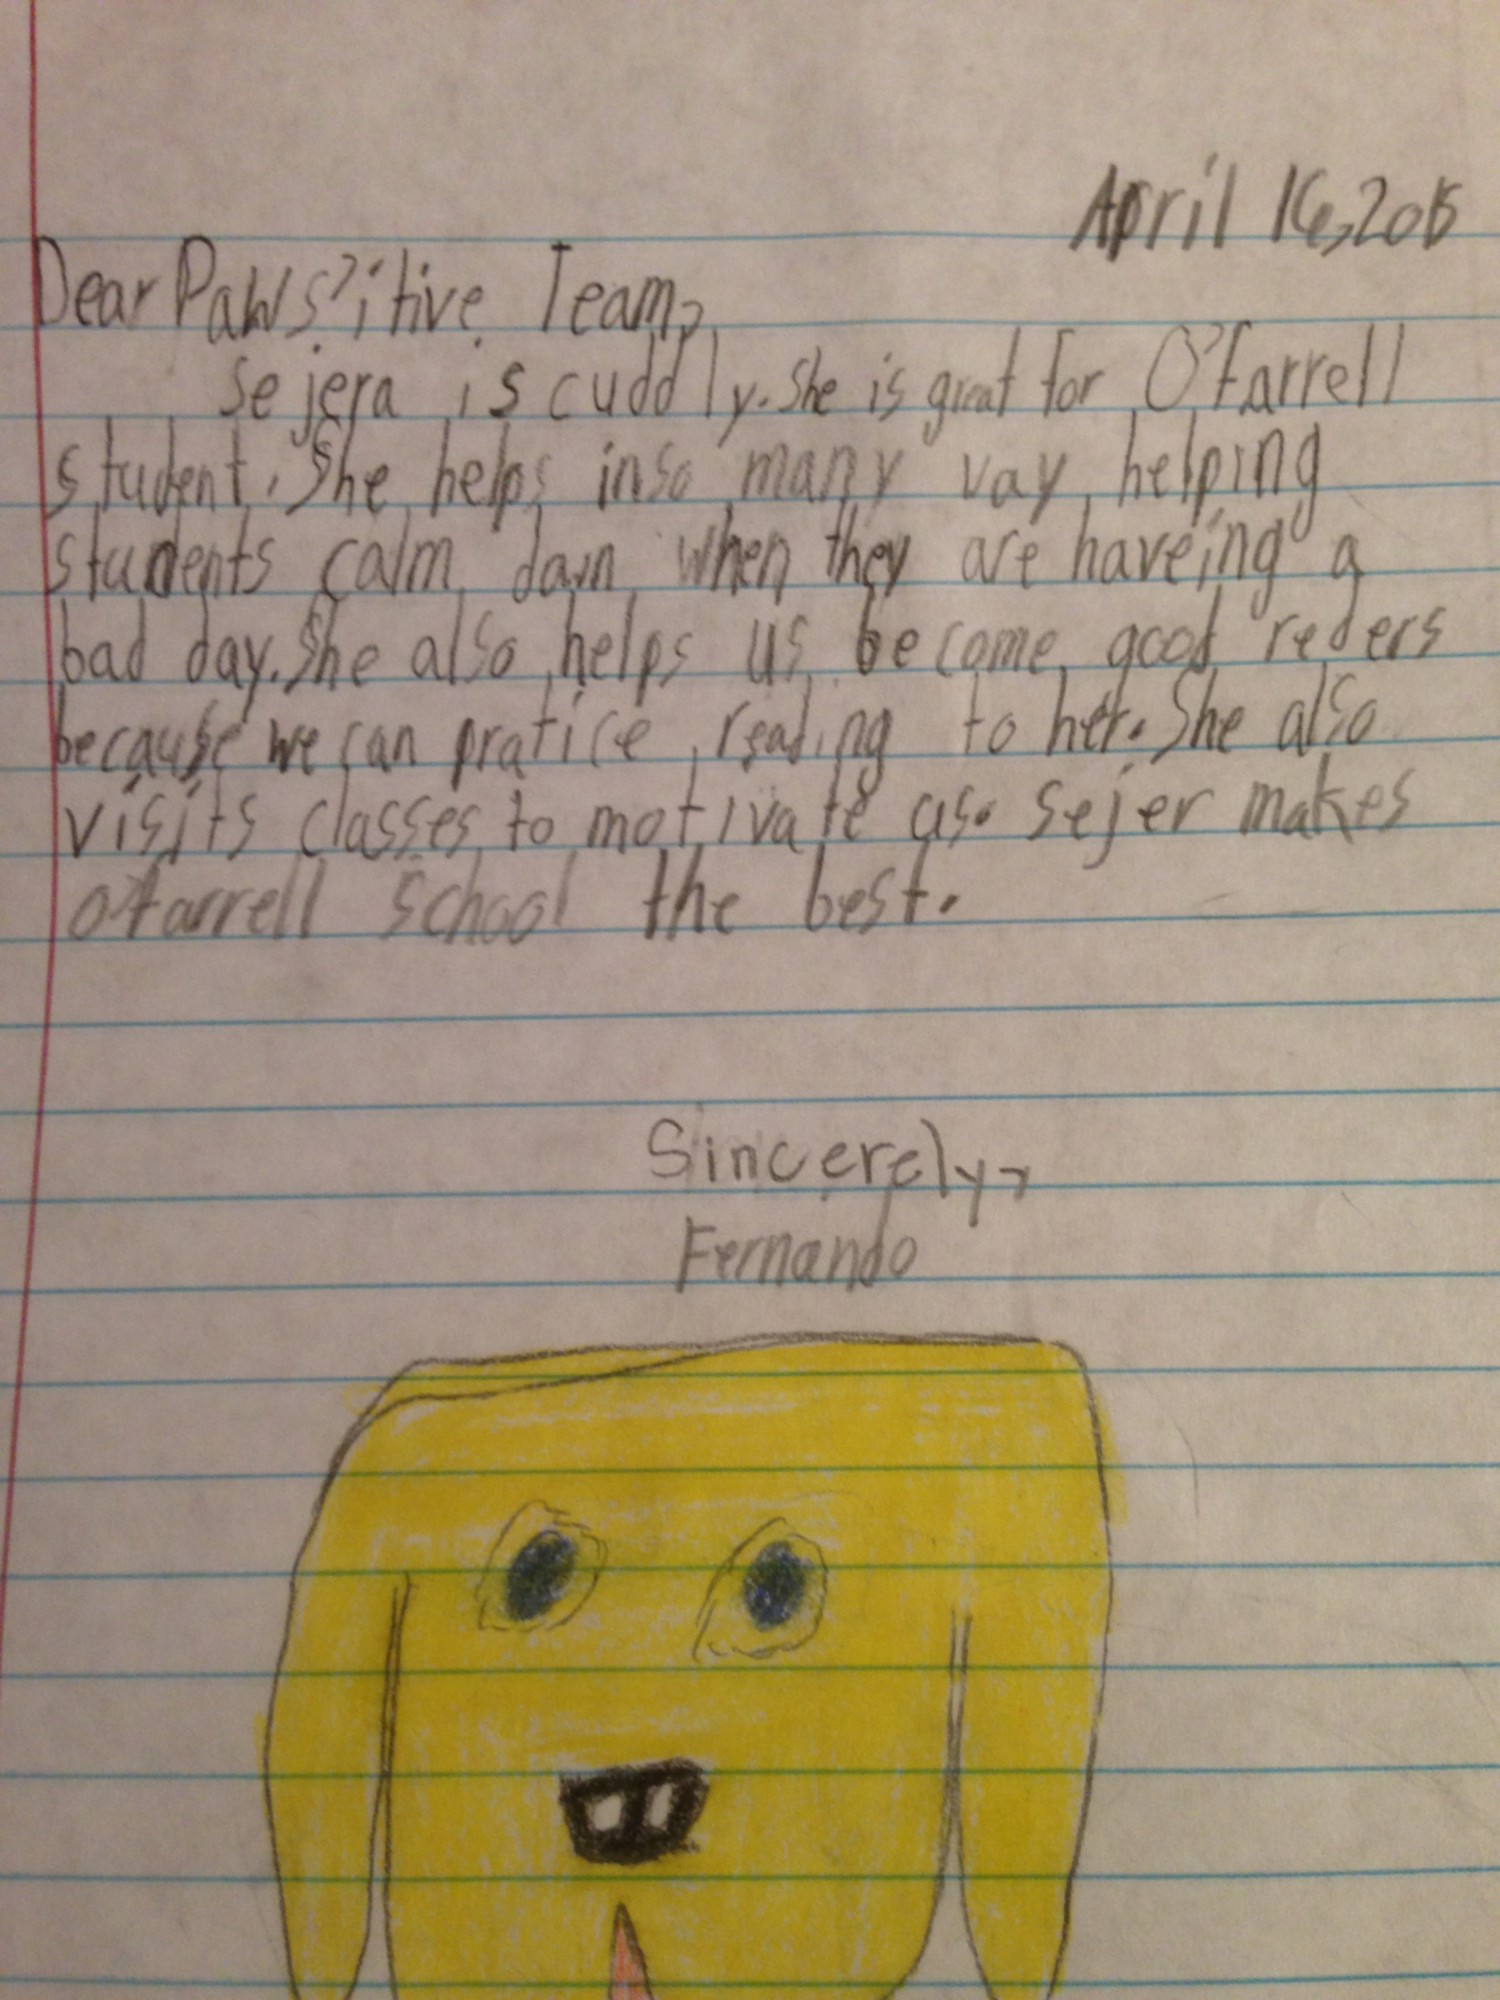 April 16, 2015
Dear Paws'itive Team,
Sejera is cuddly. She is great for O'Farrell
student. She helps in so many vay helping
students calm down when they are haveing a
bad day. She also helps us become good reders
because we can pratice reading to her. She also
visits classes to motivate us. Sejer makes
ofarrell school the best.
Sincerely,
Fernando